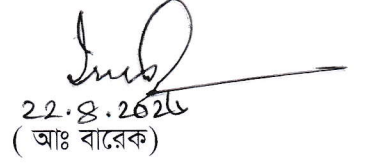 22.8.2024
( আঃ বারেক)